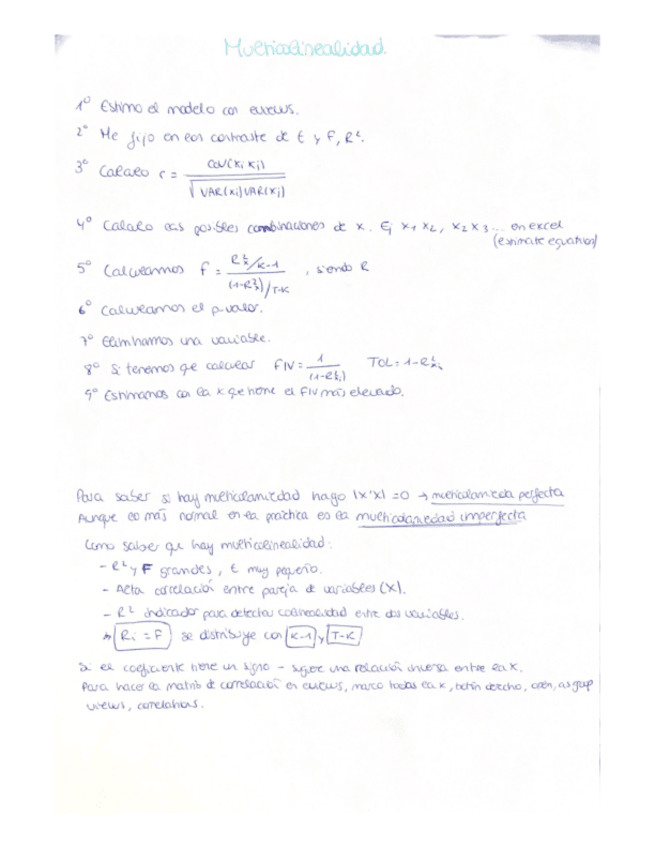 Multicolinealidad.
1º Estimo el modelo con eviews.
2º Me fijo en los contraste de t y F, R².
3º Calculo r = COV(Xi Xj) / √VAR(Xi)VAR(Xj)
4º Calculo las posibles combinaciones de X. Ej X1 X2, X2 X3... en excel
(estimate equation)
5º Calculamos F = R²/K-1 / (1-R²)/T-K , siendo R
6º Calculamos el p-valor.
7º Eliminamos una variable.
8º Si tenemos que calcular FIV = 1 / (1-R²xi) TOL = 1-R²xi
9º Estimamos con la X que tiene el FIV más elevado.
Para saber si hay multicolaniedad hago |X'X| = 0 → multicolanieda perfecta
Aunque lo más normal en la práctica es la multicolaniedad imperfecta
Como saber que hay multicolinealidad:
- R² y F grandes, t muy pequeño.
- Alta correlación entre pareja de variables (X).
- R² indicador para detectar colinealidad entre dos variables.
Ri = F se distribuye con K-1 y T-K
Si el coeficiente tiene un signo - sugiere una relación inversa entre la X.
Para hacer la matriz de correlación en eviews, marco todas la X, botón derecho, open, as group
views, correlations.